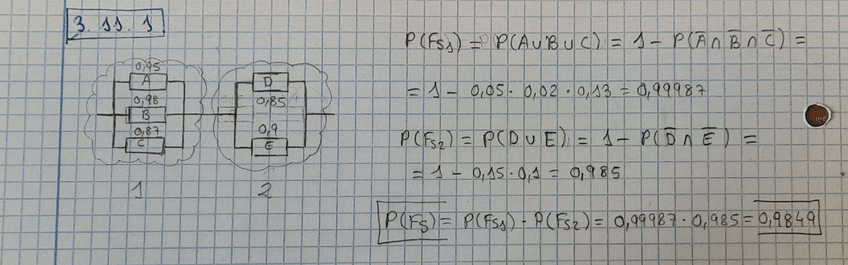 3.11.1
0,95
A
0,98
B
0,87
C
1
D
0,85
0,9
E
2
P(FS1) = P(A∪B∪C) = 1 - P(A̅∩B̅∩C̅) =
= 1 - 0,05 · 0,02 · 0,13 = 0,99987
P(FS2) = P(D∪E) = 1 - P(D̅∩E̅) =
= 1 - 0,15 · 0,1 = 0,985
P(FS) = P(FS1) · P(FS2) = 0,99987 · 0,985 = 0,9849